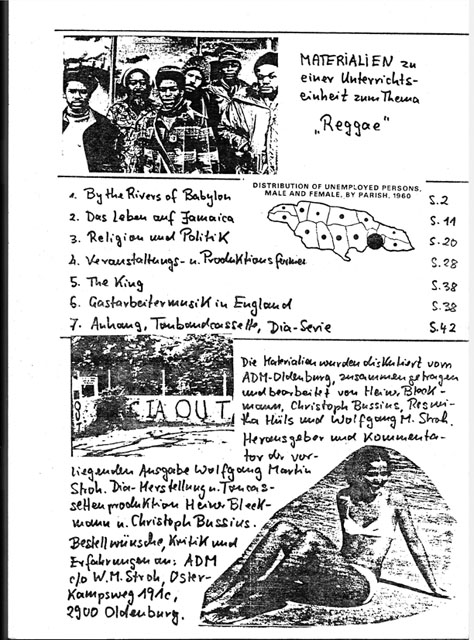 MATERIALIEN zu
einer Unterrichts-
einheit zum Thema
„Reggae"
DISTRIBUTION OF UNEMPLOYED PERSONS,
MALE AND FEMALE, BY PARISH, 1960
1. By the Rivers of Babylon S.2
2. Das Leben auf Jamaica S.11
3. Religion und Politik S.20
4. Veranstaltungs- u. Produktionsformen S.28
5. The King S.38
6. Gastarbeitermusik in England S.38
7. Anhang, Tonbandcassette, Dia-Serie S.42
CIA OUT
Die Materialien wurden diskutiert vom
ADM-Oldenburg, zusammengetragen
und bearbeitet von Heiner Bleck-
mann, Christoph Bussius, Regwi-
tha Hüls und Wolfgang M. Stroh.
Herausgeber und Kommenta-
tor der vor-
liegenden Ausgabe Wolfgang Martin
Stroh. Dia-Herstellung u. Toncas-
settenproduktion Heiner Bleck-
mann u. Christoph Bussius.
Bestellwünsche, Kritik und
Erfahrungen an: ADM
c/o W.M. Stroh, Oster-
Kampsweg 191c,
2900 Oldenburg.